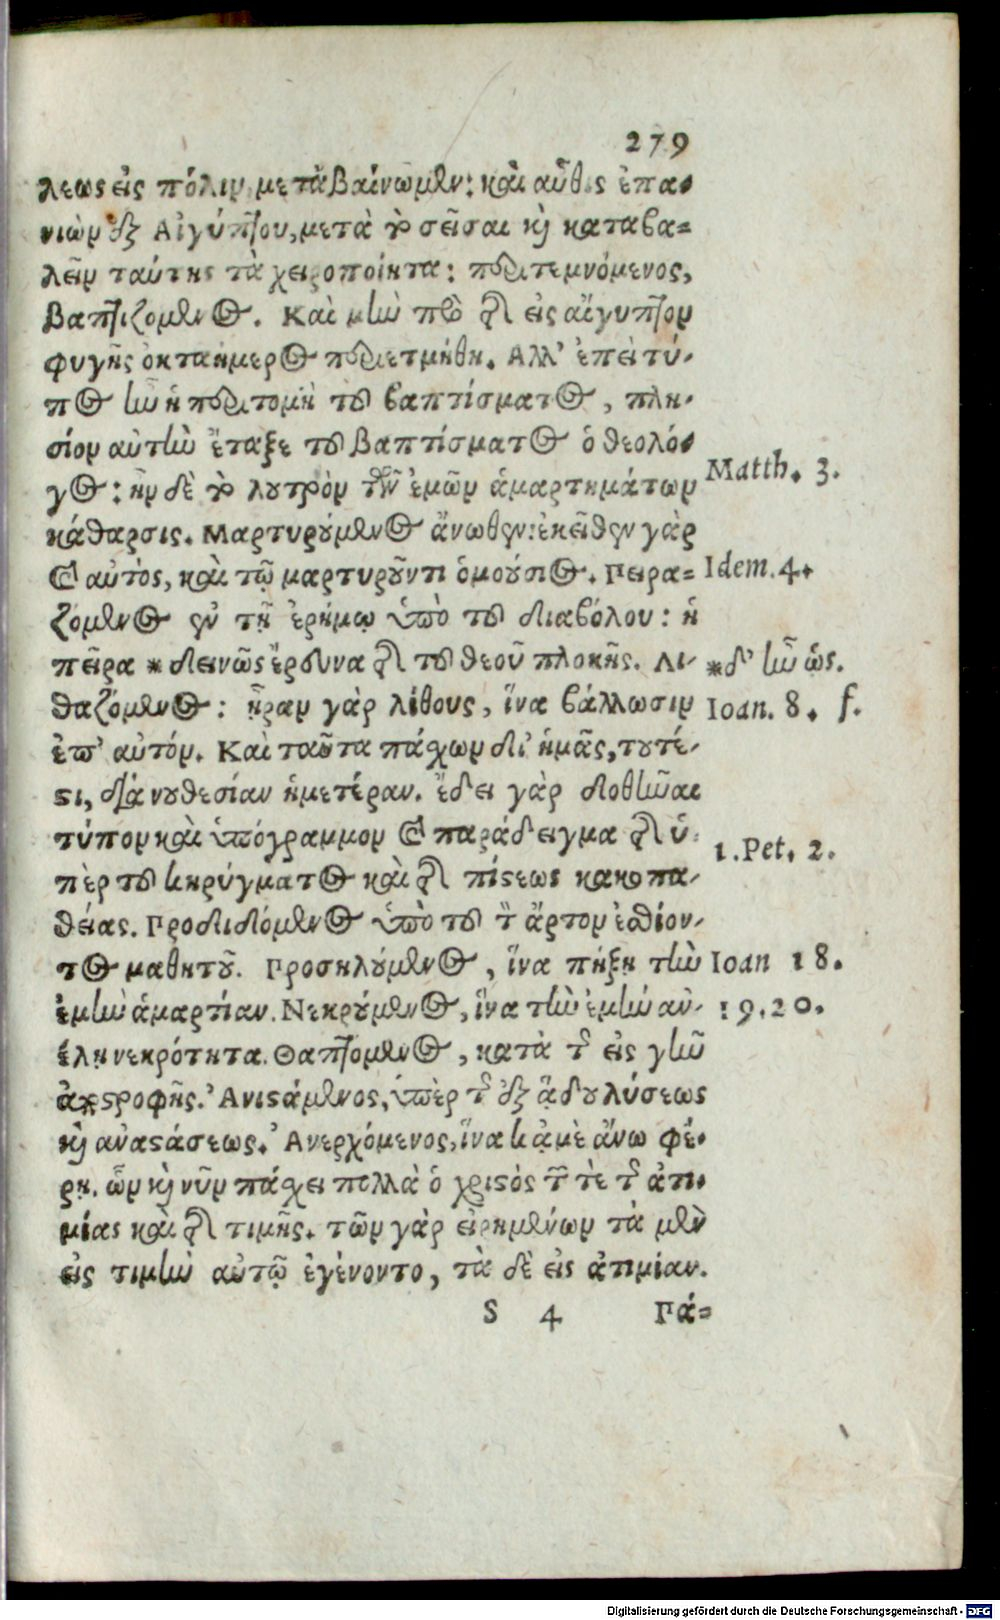 279
λεως εἰς πόλιν μεταβαίνωμεν: καὶ αὖθις ἐπα-
νιὼν ἐξ Αἰγύπτου, μετὰ τὸ σεῖσαι καὶ καταβα-
λεῖν ταύτης τὰ χειροποίητα: περιτεμνόμενος,
βαπτιζομενος. Καὶ μὴν πρὸ τῆς εἰς αἴγυπτον
φυγῆς ὀκταήμερος περιετμήθη. Αλλ' ἐπεὶ τύ-
πος ἦν ἡ περιτομὴ τοῦ βαπτίσματος, πλη-
σίον αὐτὴν ἔταξε τοῦ βαπτίσματος ὁ θεολό-
γος: ἦν δὲ τὸ λουτρὸν τῶν ἐμῶν ἁμαρτημάτων
Matth. 3.
κάθαρσις. Μαρτυρούμενος ἄνωθεν: ἐκεῖθεν γὰρ
καὶ αὐτὸς, καὶ τῷ μαρτυροῦντι ὁμούσιος. Πειρα-
Idem. 4.
ζόμενος ἐν τῇ ἐρήμῳ ὑπὸ τοῦ διαβόλου: ἡ
πεῖρα * δεινῶς ἔρευνα τῆς τοῦ θεοῦ πλοκῆς. Λι-
* δ' ἦν ὡς.
θαζόμενος: ἦραν γὰρ λίθους, ἵνα βάλλωσιν
Ioan. 8. f.
ἐπ' αὐτόν. Καὶ ταῦτα πάσχων δι' ἡμᾶς, τουτέ-
στι, διὰ νουθεσίαν ἡμετέραν. ἔδει γὰρ δοθῆναι
τύπον καὶ ὑπόγραμμον καὶ παράδειγμα τῆς ὑ-
1. Pet. 2.
πὲρ τοῦ κηρύγματος καὶ τῆς πίστεως κακοπα-
θείας. Προδιδόμενος ὑπὸ τοῦ τὸν ἄρτον ἐσθίον-
τος μαθητοῦ. Προσηλούμενος, ἵνα πήξῃ τὴν
Ioan 18.
ἐμὴν ἁμαρτίαν. Νεκρούμενος, ἵνα τὴν ἐμὴν ἀν-
19. 20.
έλῃ νεκρότητα. Θαπτομενος, κατὰ τῆς εἰς γῆν
ἀποστροφῆς. Ἀνιστάμενος, ὑπὲρ τῆς ἐξ ᾅδου λύσεως
καὶ ἀναστάσεως. Ἀνερχόμενος, ἵνα κᾀμὲ ἄνω φέ-
ρῃ. ὧν καὶ νῦν πάσχει πολλὰ ὁ χριστὸς τῆς τὲ τῆς ἀτι-
μίας καὶ τῆς τιμῆς. τῶν γὰρ εἰρημένων τὰ μὲν
εἰς τιμὴν αὐτῷ ἐγένοντο, τὰ δὲ εἰς ἀτιμίαν.
S 4 Πά-
Digitalisierung gefördert durch die Deutsche Forschungsgemeinschaft - DFG